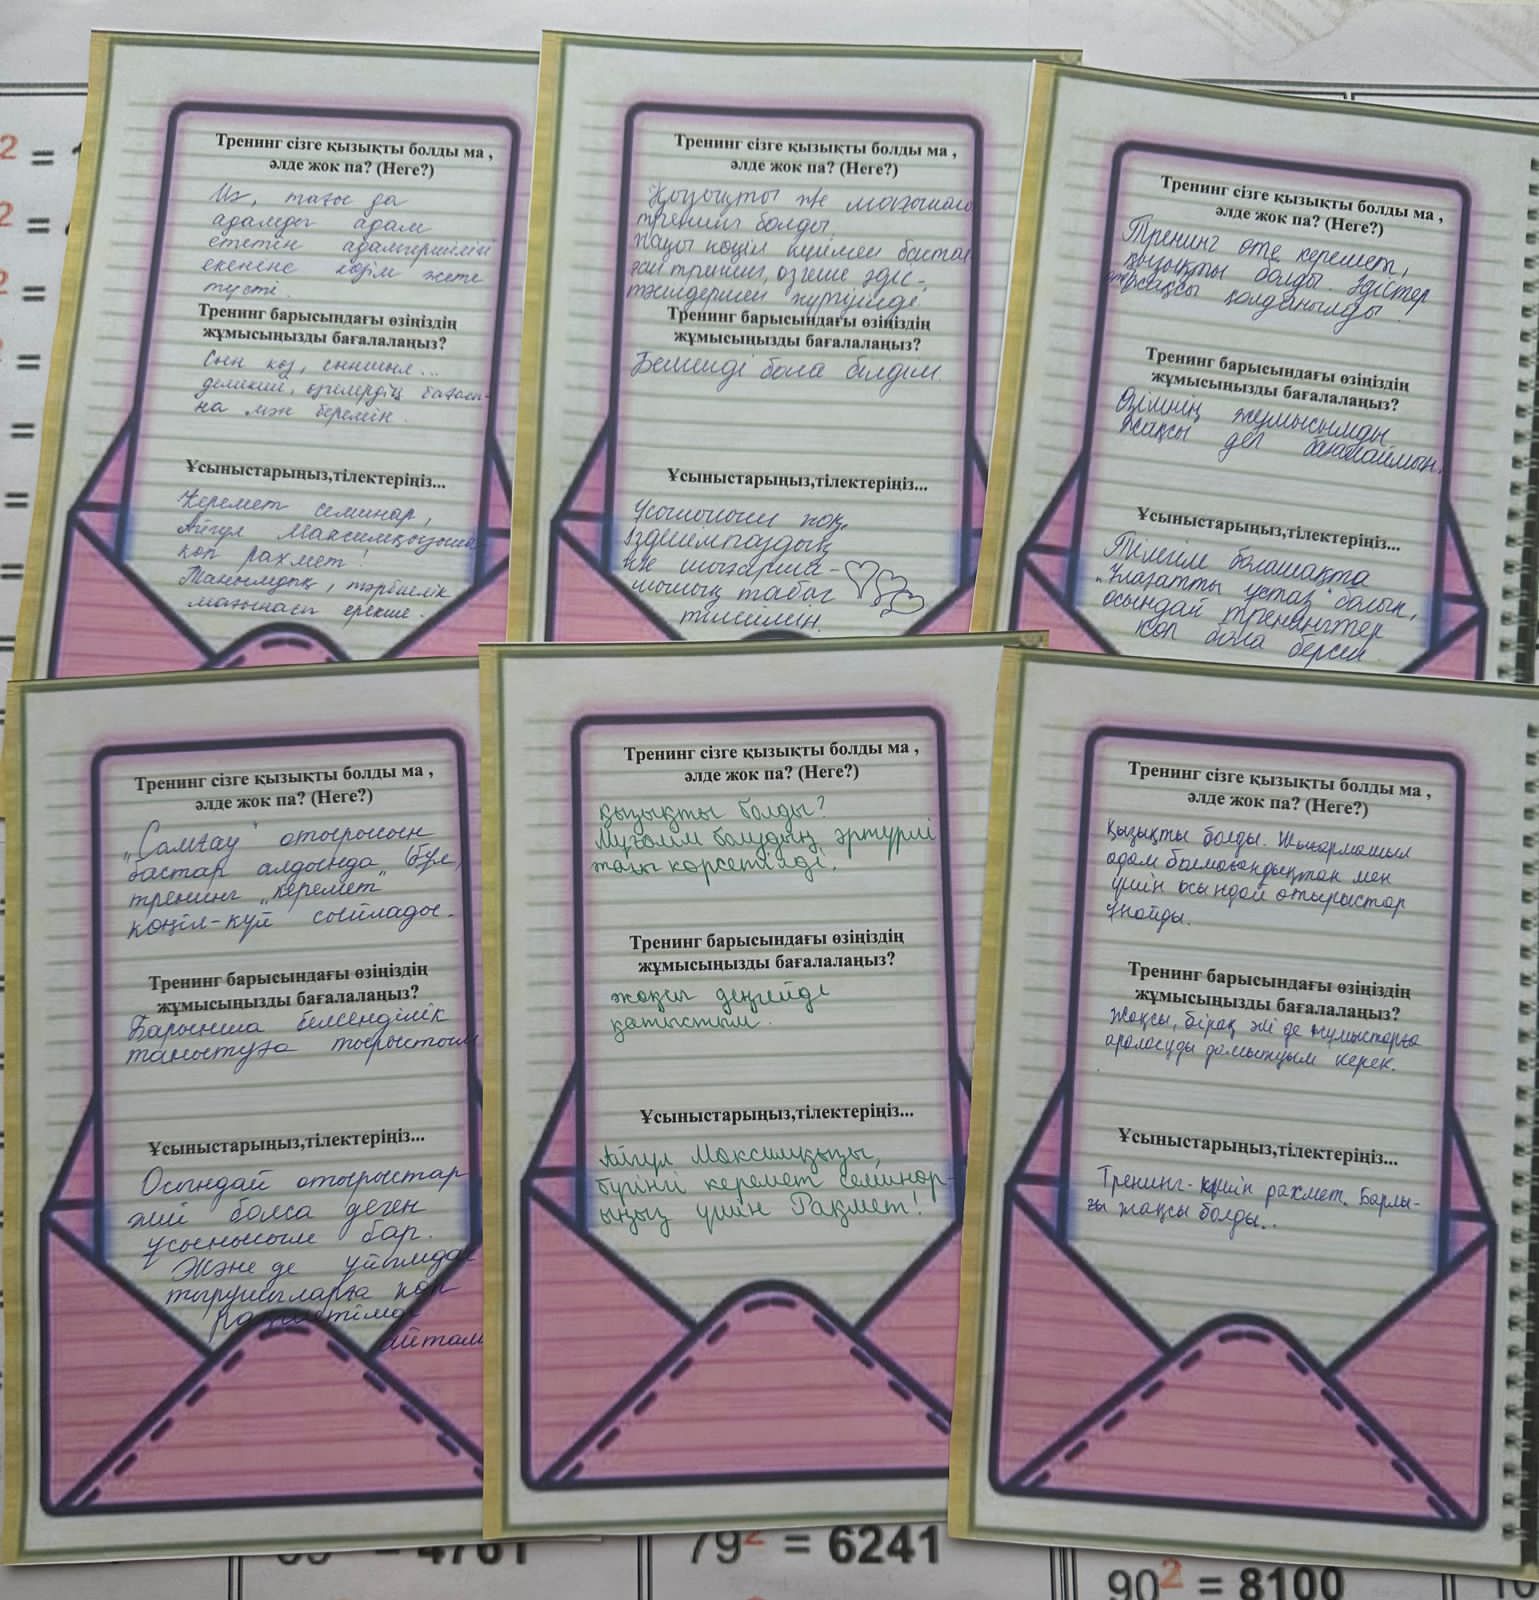 Тренинг сізге қызықты болды ма ,
әлде жок па? (Неге?)
Иә, тағы да
адамды адам
ететін адамгершілігі
екеніне көзім жете
түсті.
Тренинг барысындағы өзіңіздің
жұмысыңызды бағалалаңыз?
Сын көз, сыншыл...
демекші, өзгелердің бағасы-
на мән беремін.
Ұсыныстарыңыз,тілектеріңіз...
Керемет семинар,
Айгүл Максимқызына
көп рахмет!
Танымдық, тәрбиелік
мағынасы ерекше.
Тренинг сізге қызықты болды ма ,
әлде жок па? (Неге?)
Қызықты және мағыналы
тренинг болды.
Жақсы көңіл күймен бастал
ған тренинг, өзгеше әдіс-
тәсілдермен жүргізілді.
Тренинг барысындағы өзіңіздің
жұмысыңызды бағалалаңыз?
Белсенді бола білдім.
Ұсыныстарыңыз,тілектеріңіз...
Ұсынысым жоқ.
Ізденімпаздық
және шығарма-
шылық табыс
тілеймін.
Тренинг сізге қызықты болды ма ,
әлде жок па? (Неге?)
Тренинг өте керемет,
қызықты болды. Әдістер
өте жақсы қолданылды.
Тренинг барысындағы өзіңіздің
жұмысыңызды бағалалаңыз?
Өзімнің жұмысымды
жақсы деп бағалаймын.
Ұсыныстарыңыз,тілектеріңіз...
Тілегім болашақта
"Ұлағатты ұстаз" болып,
осындай тренингтер
көп бола берсін
Тренинг сізге қызықты болды ма ,
әлде жок па? (Неге?)
„Самғау" отырысын
бастар алдында, бұл
тренинг „керемет"
көңіл-күй сыйлады.
Тренинг барысындағы өзіңіздің
жұмысыңызды бағалалаңыз?
Барынша белсенділік
танытуға тырыстым
Ұсыныстарыңыз,тілектеріңіз...
Осындай отырыстар
жиі болса деген
ұсынысым бар.
Және де ұйымдас
тырушыларға көп
рахметімді
айтам
Тренинг сізге қызықты болды ма ,
әлде жок па? (Неге?)
Қызықты болды?
Мұғалім болудың әртүрлі
жағы көрсетілді.
Тренинг барысындағы өзіңіздің
жұмысыңызды бағалалаңыз?
жақсы деңгейде
қатыстым.
Ұсыныстарыңыз,тілектеріңіз...
Айгүл Максимқызы,
бүгінгі керемет семинар-
ыңыз үшін Рақмет!
Тренинг сізге қызықты болды ма ,
әлде жок па? (Неге?)
Қызықты болды. Жығармашыл
адам болмағандықтан мен
үшін осындай отырыстар
ұнайды.
Тренинг барысындағы өзіңіздің
жұмысыңызды бағалалаңыз?
Жақсы, бірақ әлі де жұмыстарға
араласуды дамытуым керек.
Ұсыныстарыңыз,тілектеріңіз...
Тренинг үшін рахмет. Барлы-
ғы жақсы болды..
= 4761
79² = 6241
90² = 8100